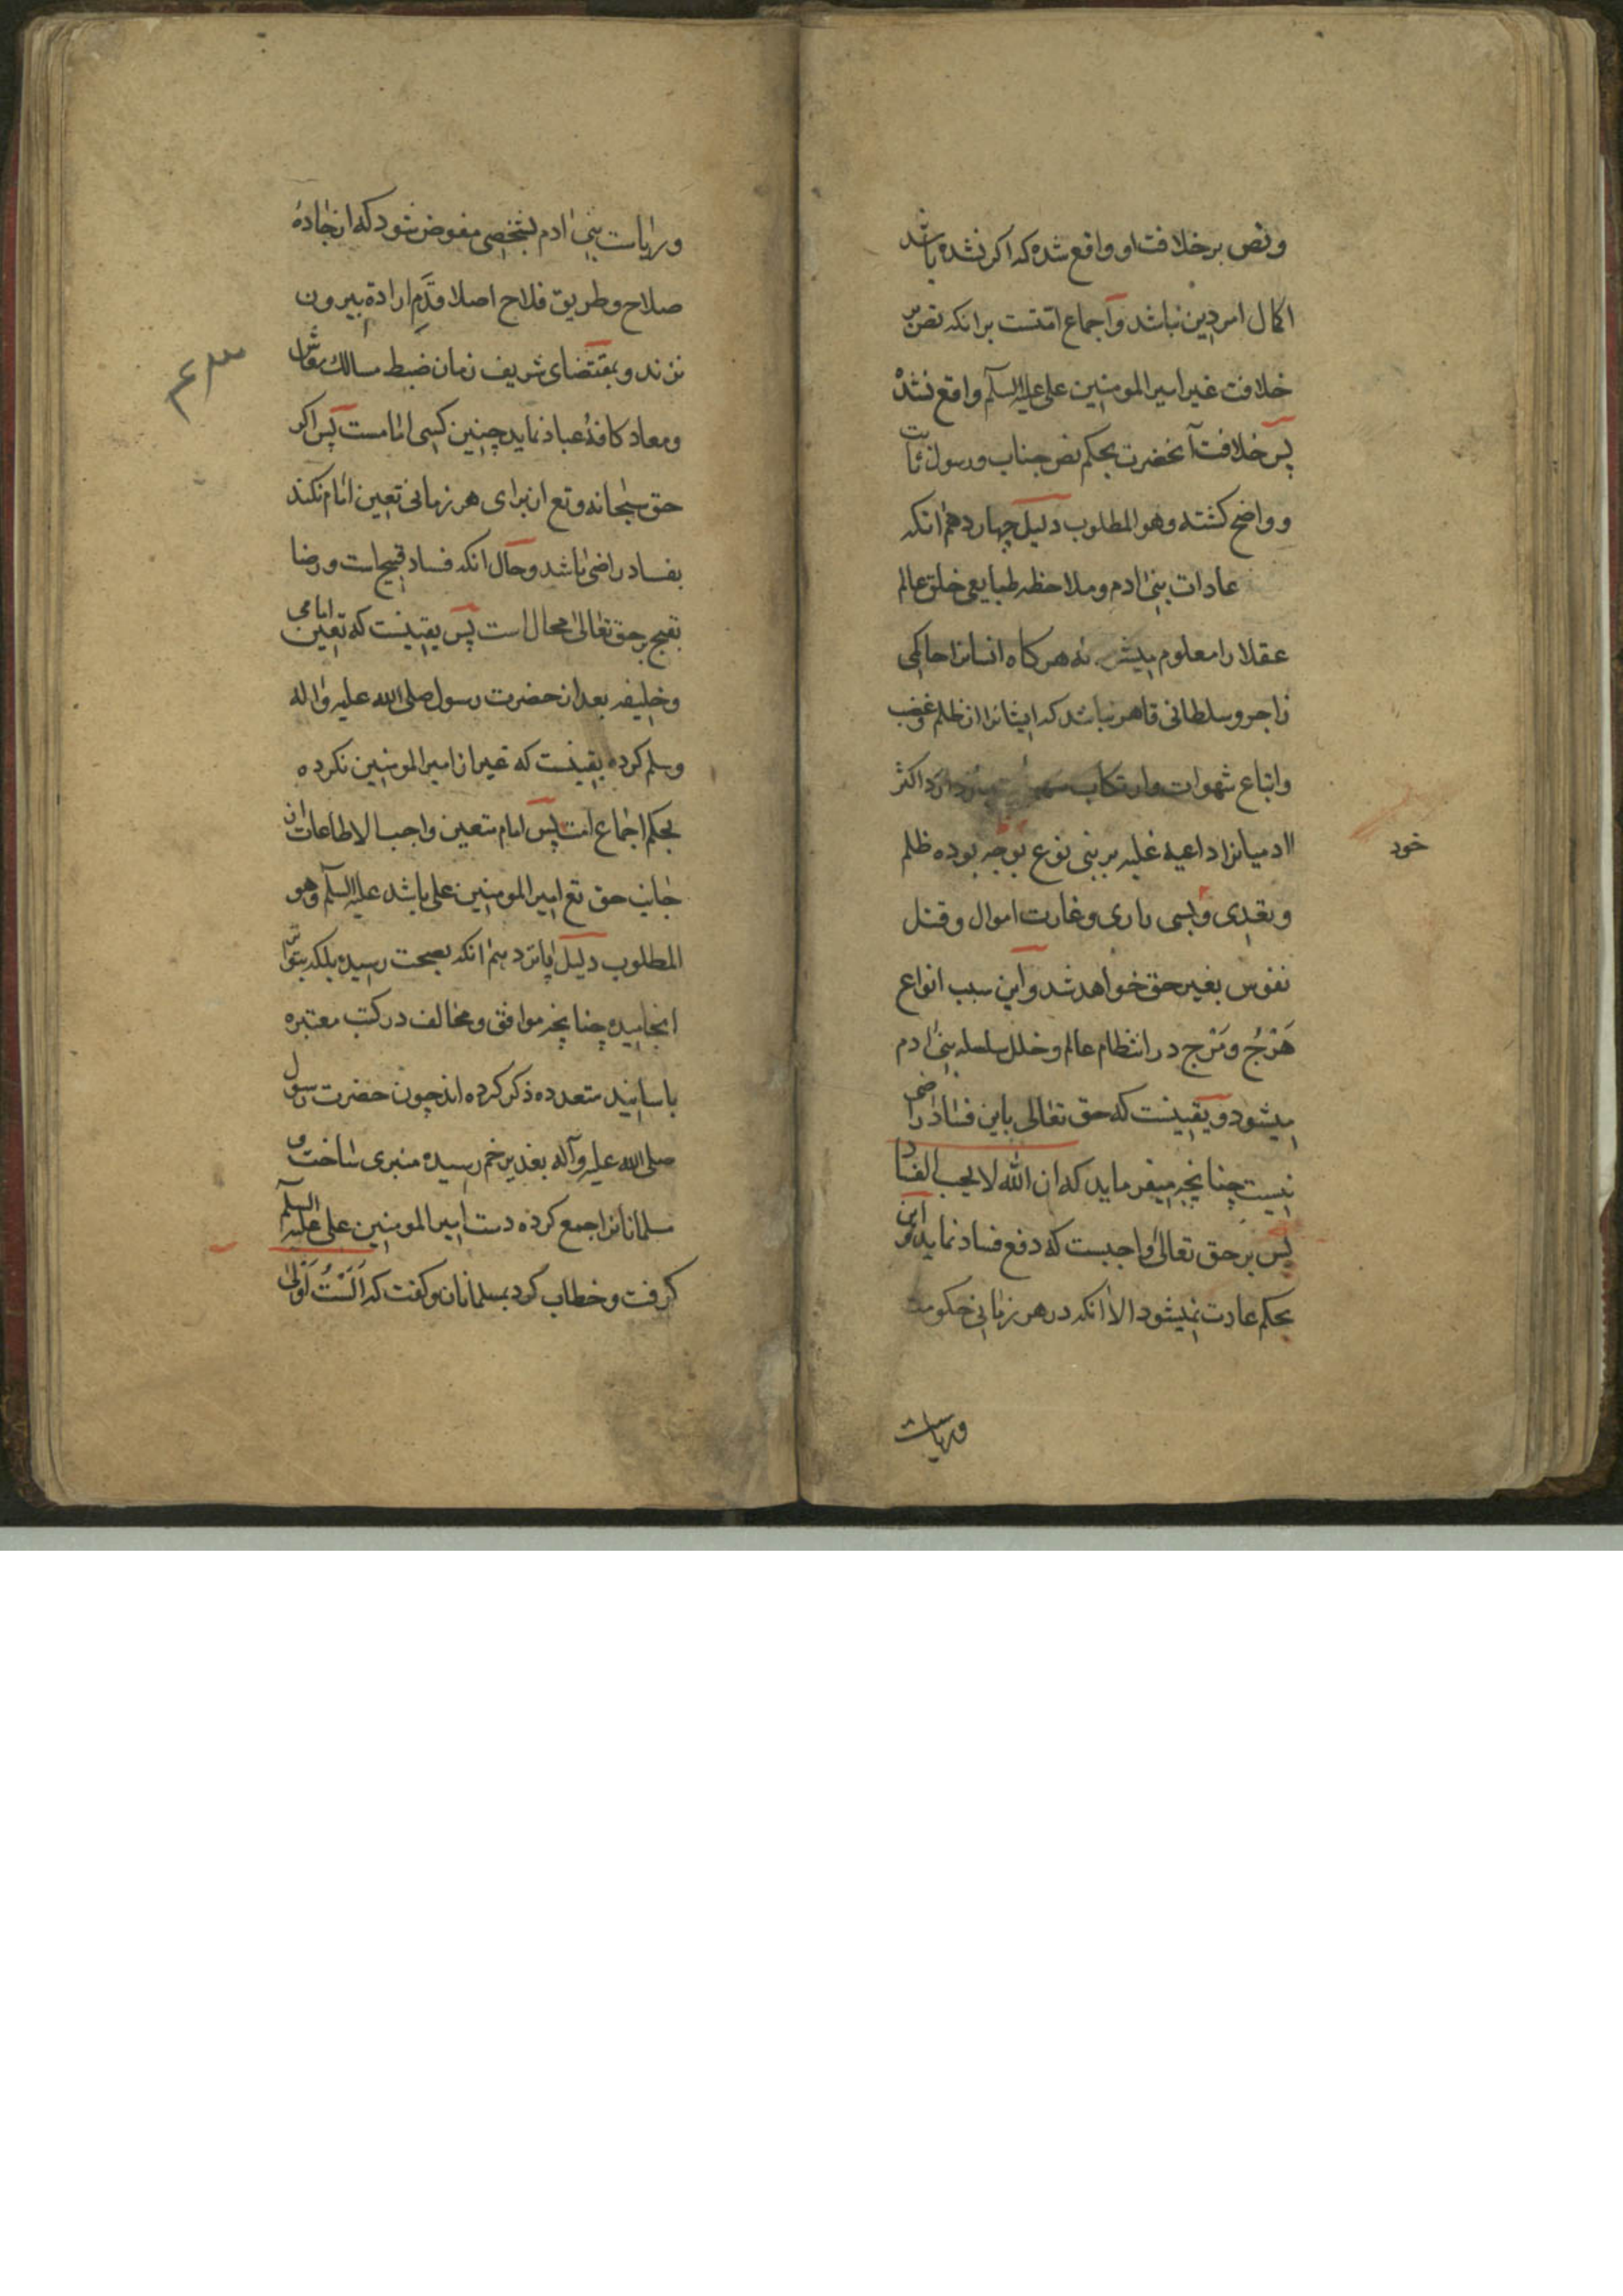 ونص بر خلافت او واقع شده که اکر نشده باشد
اکمال امر دین نباشد و اجماع امتست برانکه نص بر
خلافت غیر امیر المومنین علی علیه السلم واقع نشده
پس خلافت آنحضرت بحکم نص جناب و رسول ثابت
و واضح کشته وهو المطلوب دلیل چهاردهم انکه
عادات بنی ادم و ملاحظه طبایع خلق عالم
عقلا را معلوم میشود که هرکاه انسانرا حاکمی
زاجر و سلطانی قاهر نباشد که ایشانرا از ظلم و غضب
و اتباع شهوات و ارتکاب دارد اکثر
ادمیانرا داعیه غلبه بر بنی نوع بوجه بوده ظلم
خود
و تعدی و بسی باری و غارت اموال و قتل
نفوس بغیر حق خواهد شد و این سبب انواع
هَرْجُ و مَرْج در انتظام عالم و خلل سلسله بنی ادم
میشود و یقینست که حق تعالی باین فساد راضی
نیست چنانچه میفرماید که ان الله لا یحب الفساد
پس بر حق تعالی واجبست که دفع فساد نماید و این
بحکم عادت نمیشود الا انکه در هر زمانی حکومت
وریاست
وریاست بنی ادم بشخصی مفوض شود که از جادهٔ
صلاح و طریق فلاح اصلا قدَم ارادة بیرون
ننهد و بمقتضای شریف زمان ضبط مسالک معاش
ومعاد کافهٔ عباد نماید چنین کسی امامست پس اکر
حق سبحانه و تع از برای هر زمانی تعین امام نکند
بفساد راضی باشد و حال انکه فساد قبیح است و رضا
بقبیح بر حق تعالی محال است پس یقینست که تعین امامی
وخلیفه بعد از حضرت رسول صلی الله علیه و اله
وسلم کرده یقینست که غیر از امیر المومنین نکرده
بحکم اجماع امت پس امام متعین واجب الاطاعات از
جانب حق تع امیر المومنین علی باشد علیه السلم وهو
المطلوب دلیل پانزدهم انکه بصحت رسیده بلکه بتواتر
انجامیده چنانچه موافق و مخالف در کتب معتبره
باسانید متعدده ذکر کرده اند چون حضرت رسول
صلی الله علیه وآله بغدیر خم رسیده منبری ساخت و
مسلمانانرا جمع کرده دست امیر المومنین علی علیه السلم
کرفت و خطاب کرد بمسلمانان و کفت که اَلَسْتُ اَوْلی